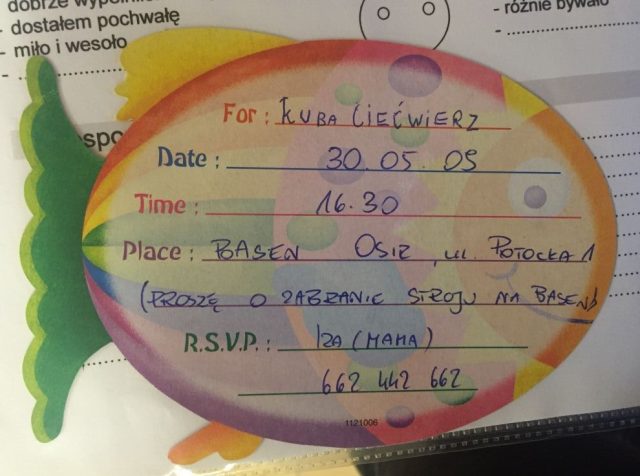 - dostałem pochwałę
- miło i wesoło
- różnie bywało
For : KUBA CIEĆWIERZ
Date : 30.05.09
Time : 16.30
Place : BASEN OSIR, ul. POTOCKA 1
(PROSZĘ O ZABRANIE STROJU NA BASEN)
R.S.V.P. : IZA (MAMA)
662 442 662
1121006